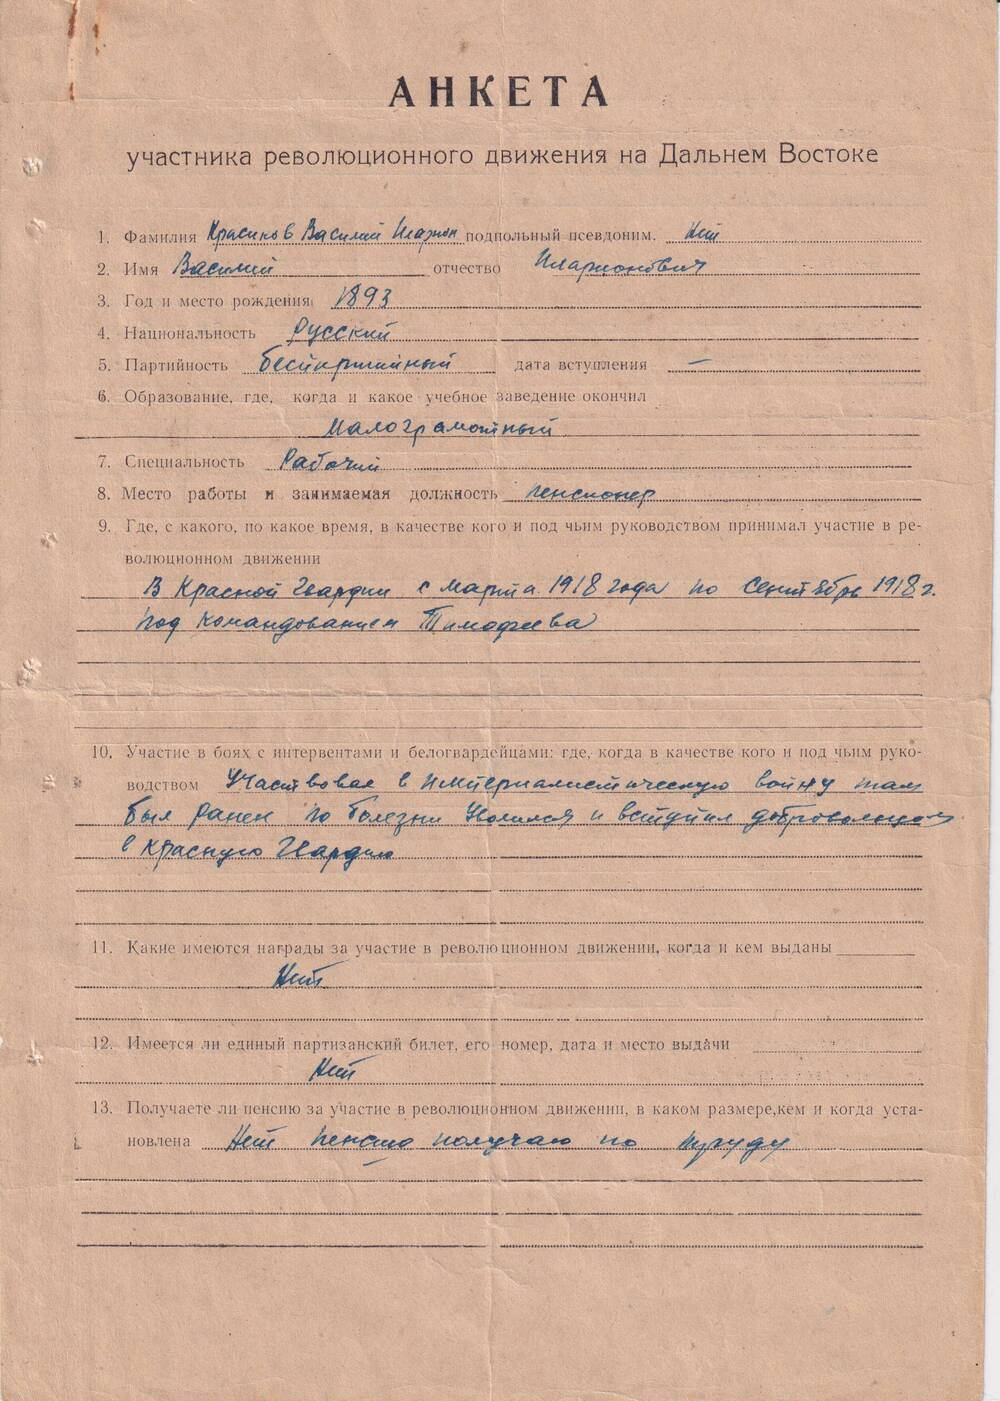 АНКЕТА
участника революционного движения на Дальнем Востоке
1. Фамилия Красиков Василий Иларион подпольный псевдоним. Нет
2. Имя Василий отчество Иларионович
3. Год и место рождения 1893
4. Национальность Русский
5. Партийность беспартийный дата вступления —
6. Образование, где, когда и какое учебное заведение окончил
Малограмотный
7. Специальность Рабочий
8. Место работы и занимаемая должность пенсионер
9. Где, с какого, по какое время, в качестве кого и под чьим руководством принимал участие в ре-
волюционном движении
В Красной Гвардии с марта 1918 года по Сентябрь 1918 г.
под командованием Тимофеева
10. Участие в боях с интервентами и белогвардейцами: где, когда в качестве кого и под чьим руко-
водством Участвовал в империалистическую войну там
был ранен по болезни и вступил добровольцем
в Красную Гвардию
11. Какие имеются награды за участие в революционном движении, когда и кем выданы
Нет
12. Имеется ли единый партизанский билет, его номер, дата и место выдачи
Нет
13. Получаете ли пенсию за участие в революционном движении, в каком размере,кем и когда уста-
новлена Нет пенсию получаю по труду